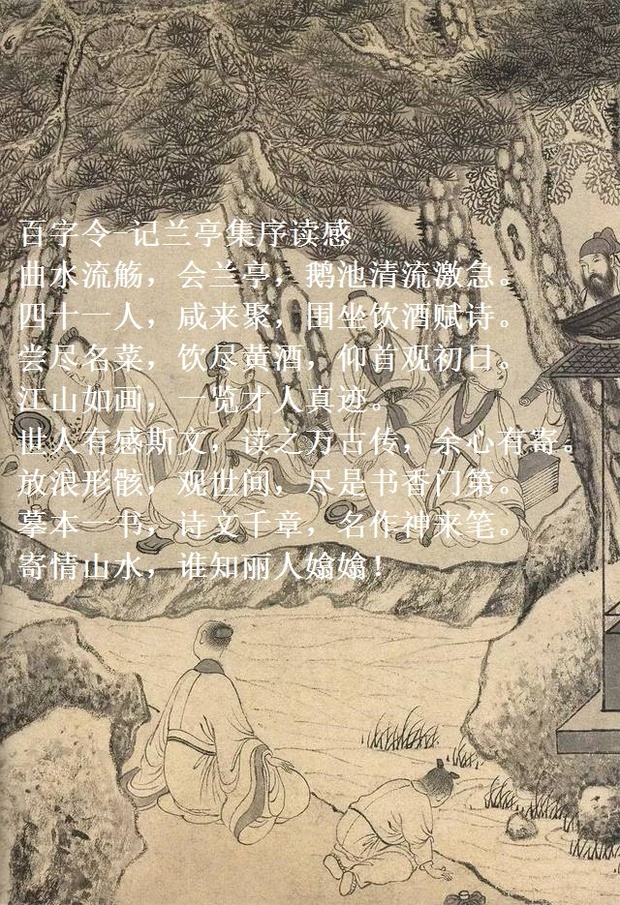 百字令-记兰亭集序读感
曲水流觞，会兰亭，鹅池清流激急。
四十一人，咸来聚，围坐饮酒赋诗。
尝尽名菜，饮尽黄酒，仰首观初日。
江山如画，一览才人真迹。
世人有感斯文，读之万古传，余心有寄。
放浪形骸，观世间，尽是书香门第。
摹本一书，诗文千章，名作神来笔。
寄情山水，谁知丽人嬆嬆！